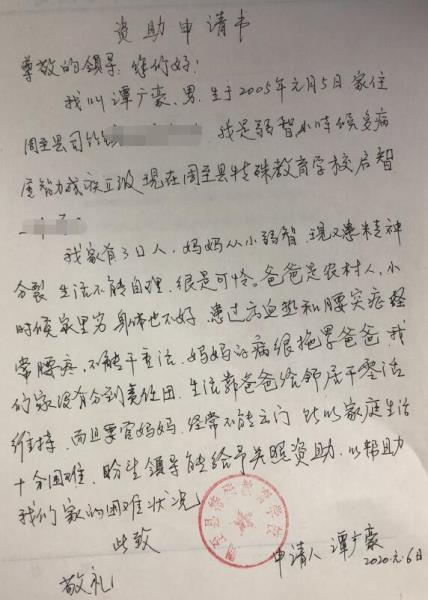 资助申请书
尊敬的领导: 您你好!
我叫谭广豪、男、生于2005年元月5日 家住
周至县司竹镇 我是弱智小时候多病
度智力残疾 级 现在周至县特殊教育学校启智
我家有3口人,妈妈从小弱智、现又患精神
分裂 生活不能自理、很是可怜。爸爸是农村人,小
时候家里穷 身体也不好、患过 和腰突症 经
常腰疼、不能干重活、妈妈的病很拖累爸爸、我
们家没有分到责任田、生活靠爸爸给邻居干零活
维持、而且要管妈妈、经常不能出门 所以家庭生活
十分困难、盼望领导能给予关照资助、以帮助
我们家的困难状况
此致
申请人 谭广豪
敬礼!
2020.元.6日